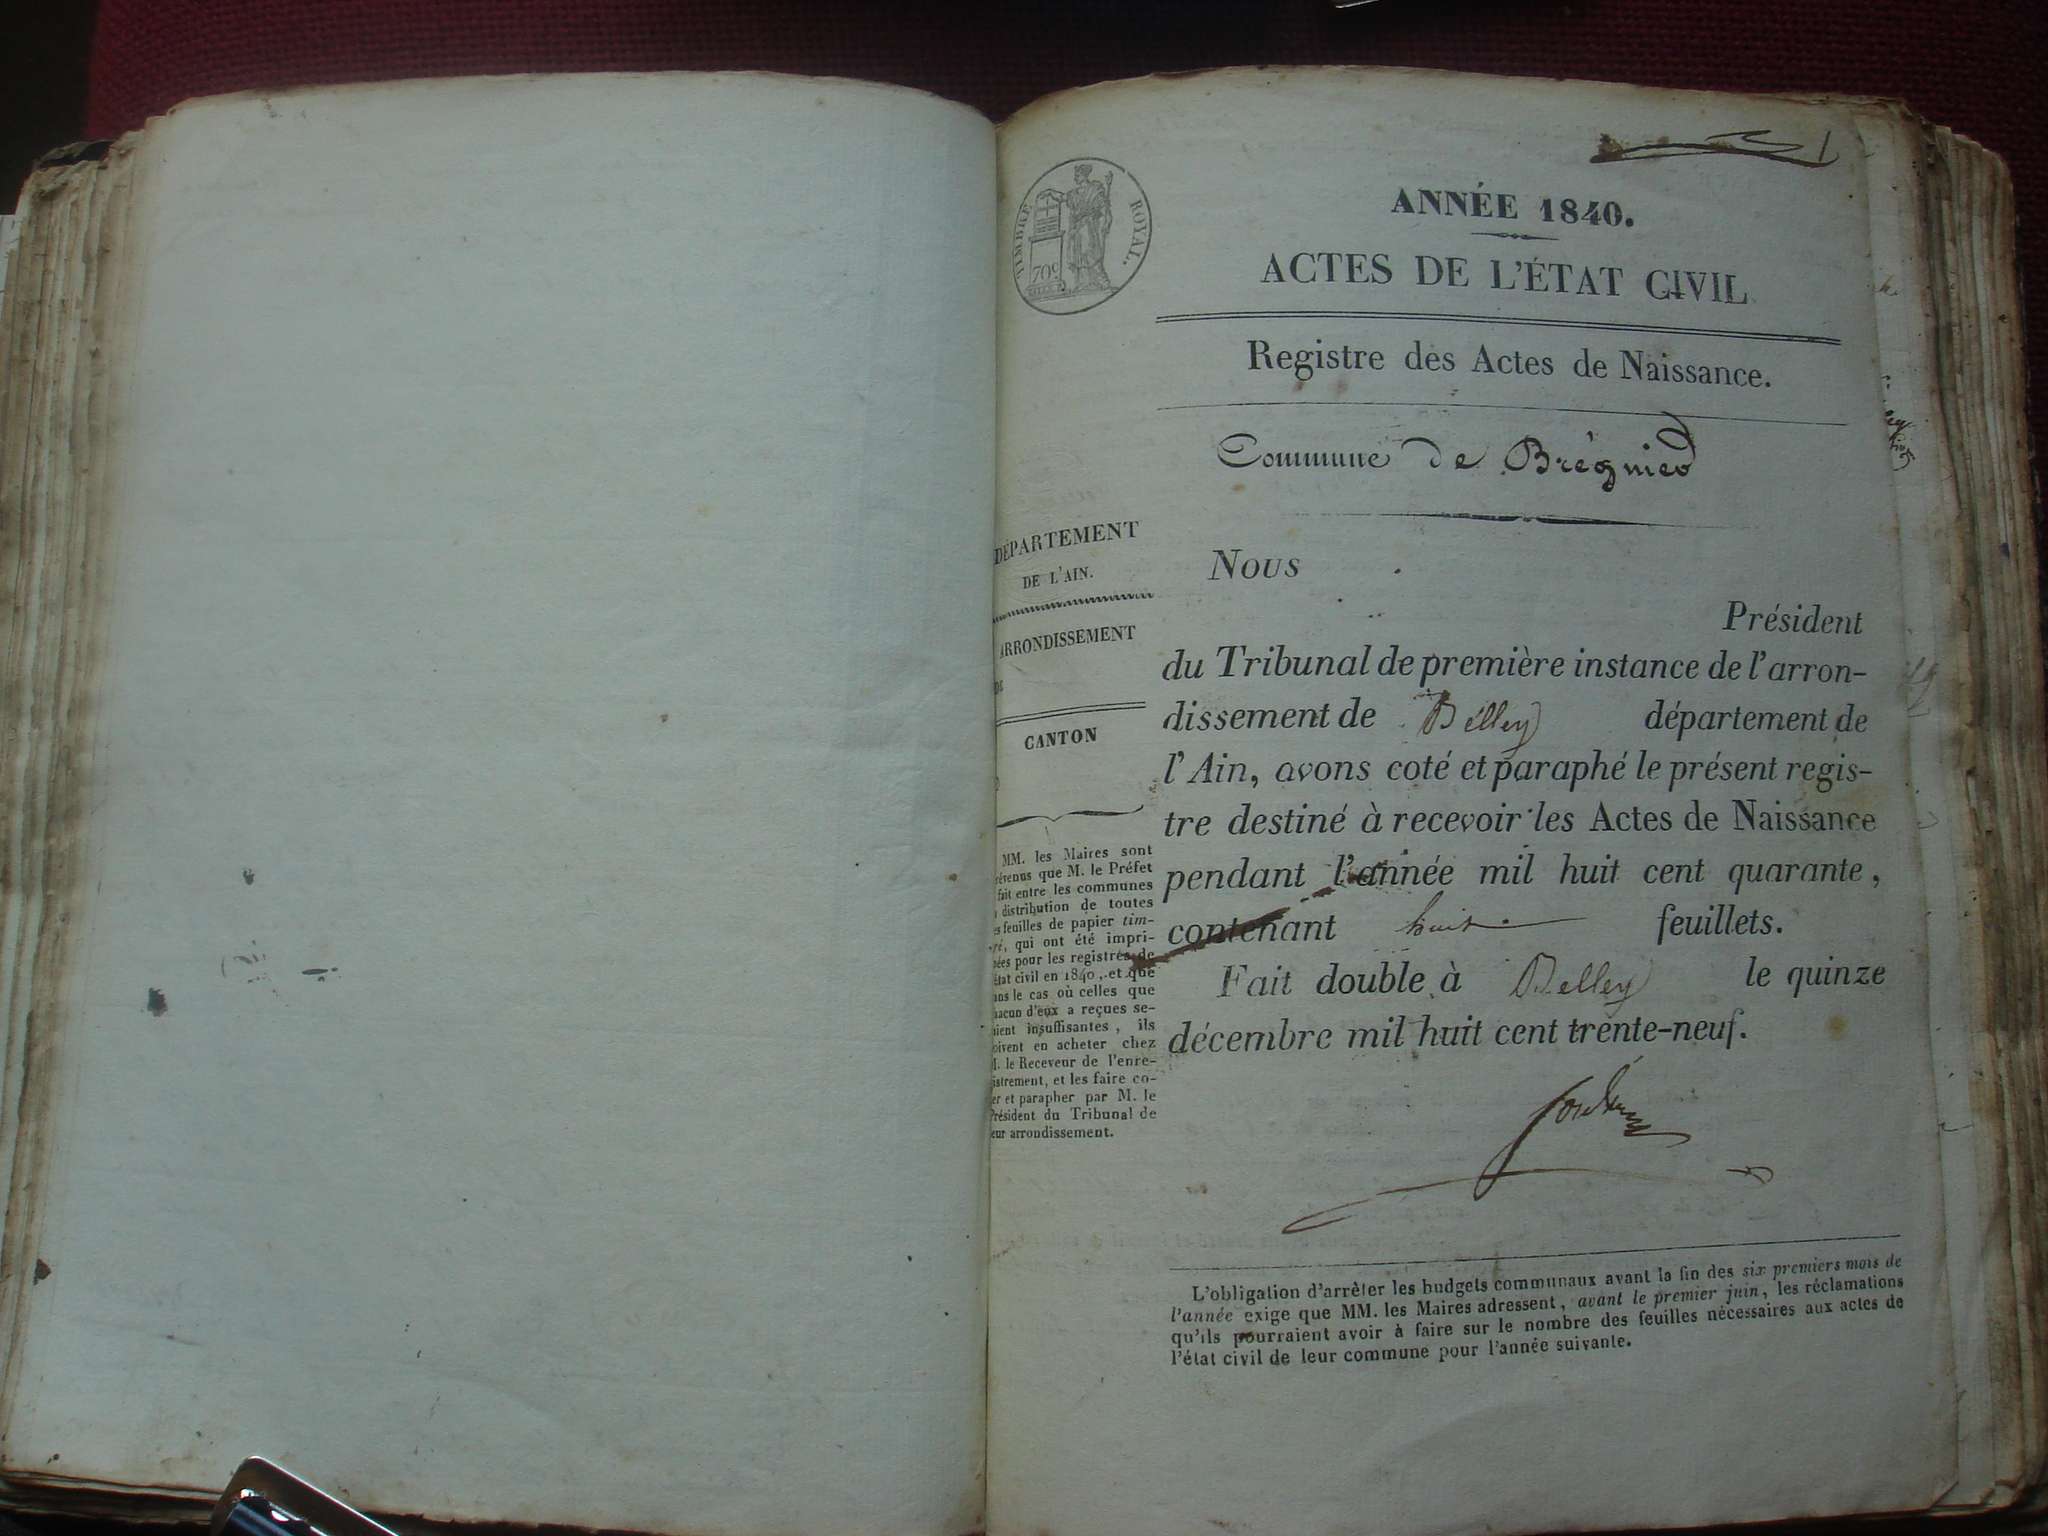 1
TIMBRE ROYAL.
70c
ANNÉE 1840.
ACTES DE L'ÉTAT CIVIL
Registre des Actes de Naissance.
Commune de Brégnier
DÉPARTEMENT
DE L'AIN.
ARRONDISSEMENT
DE
CANTON
MM. les Maires sont
révenus que M. le Préfet
fait entre les communes
distribution de toutes
es feuilles de papier tim-
ré, qui ont été impri-
ées pour les registres de
état civil en 1840, et que
ans le cas où celles que
hacun d'eux a reçues se-
aient insuffisantes, ils
oivent en acheter chez
M. le Receveur de l'enre-
istrement, et les faire co-
er et parapher par M. le
Président du Tribunal de
eur arrondissement.
Nous
Président
du Tribunal de première instance de l'arron-
dissement de Belley département de
l'Ain, avons coté et paraphé le présent regis-
tre destiné à recevoir les Actes de Naissance
pendant l'année mil huit cent quarante,
contenant huit feuillets.
Fait double à Belley le quinze
décembre mil huit cent trente-neuf.
L'obligation d'arrêter les budgets communaux avant la fin des six premiers mois de
l'année exige que MM. les Maires adressent, avant le premier juin, les réclamations
qu'ils pourraient avoir à faire sur le nombre des feuilles nécessaires aux actes de
l'état civil de leur commune pour l'année suivante.